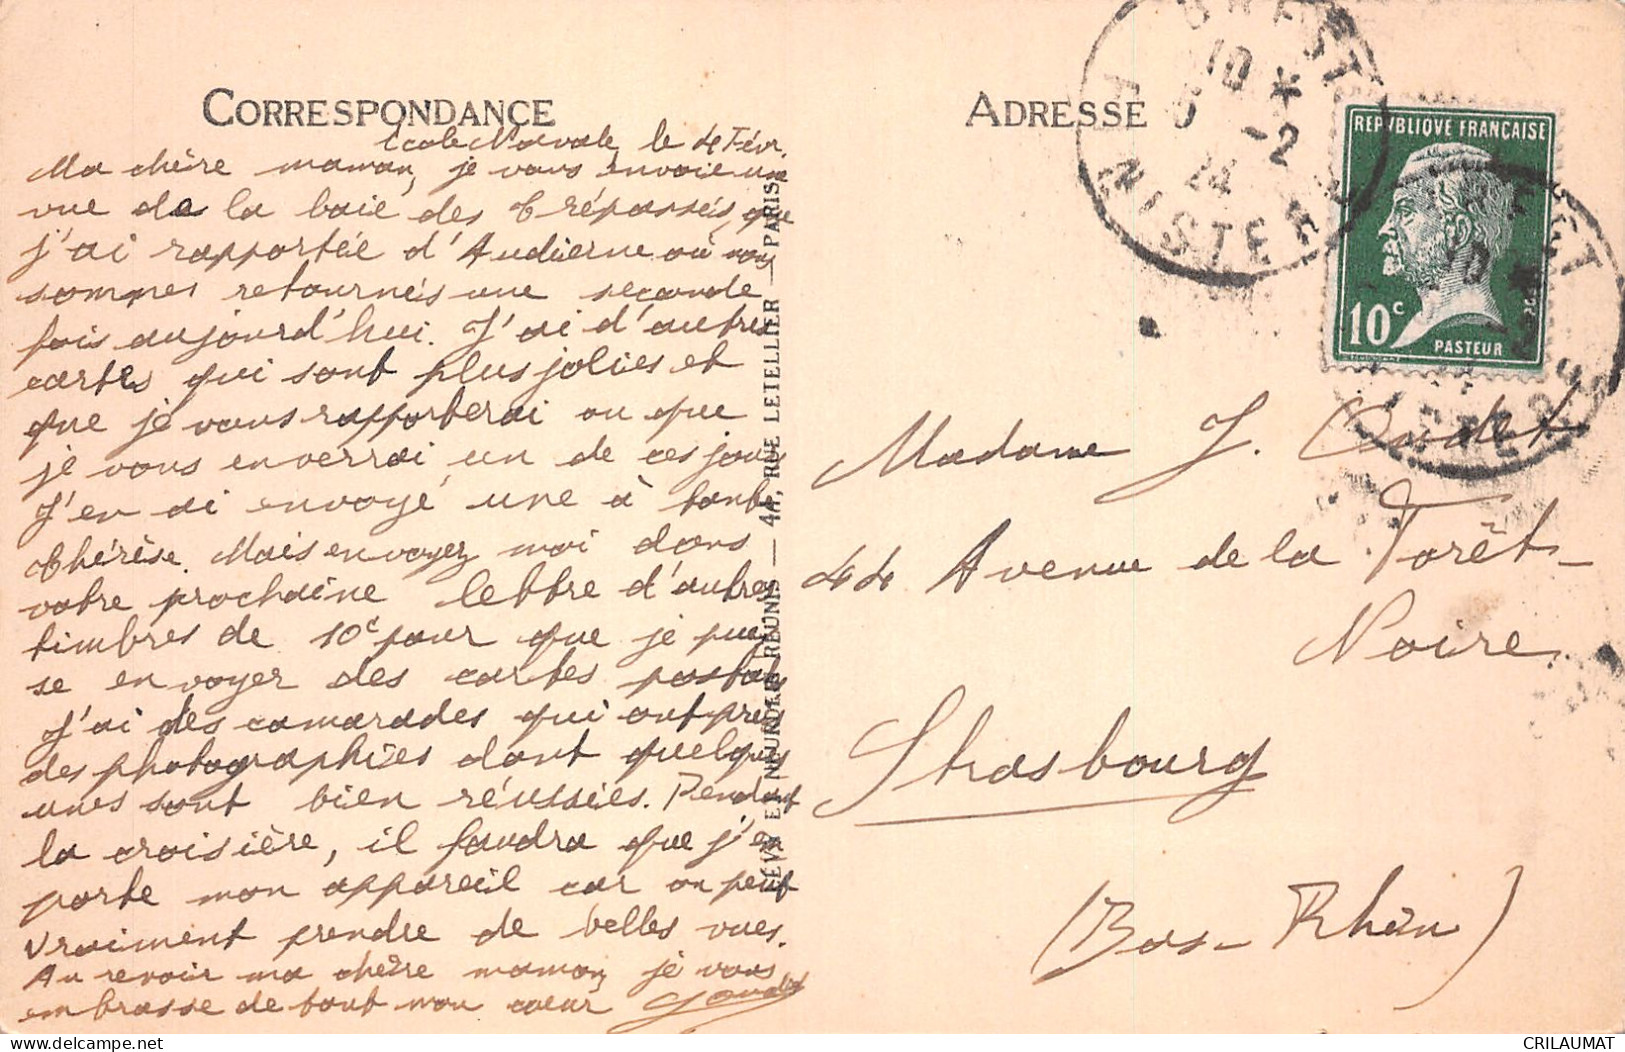 CORRESPONDANCE
Ecole Navale le 4 Févr.
Ma chère maman, je vous envoie une
vue de la baie des Trépassés, que
j'ai rapportée d'Audierne où nous
sommes retournés une seconde
fois aujourd'hui. J'ai d'autres
cartes qui sont plus jolies et
que je vous rapporterai ou que
je vous enverrai un de ces jours
J'en ai envoyé une à tante
Thérèse. Mais envoyez moi dans
votre prochaine lettre d'autres
timbres de 10c pour que je puis
se envoyer des cartes postales
J'ai des camarades qui ont pris
des photographies dont quelques
unes sont bien réussies. Pendant
la croisière, il faudra que j'em
porte mon appareil car on peut
vraiment prendre de belles vues.
Au revoir ma chère maman, je vous
embrasse de tout mon cœur
LEVY ET NEURDEIN REUNIS — 44, RUE LETELLIER — PARIS
ADRESSE
BREST
10 *
-2
24
FINISTERE
REPVBLIQVE FRANÇAISE
10c
PASTEUR
BREST
10 *
Madame J. Oudet
44 Avenue de la Forêt-
Noire
Strasbourg
(Bas-Rhin)
CRILAUMAT